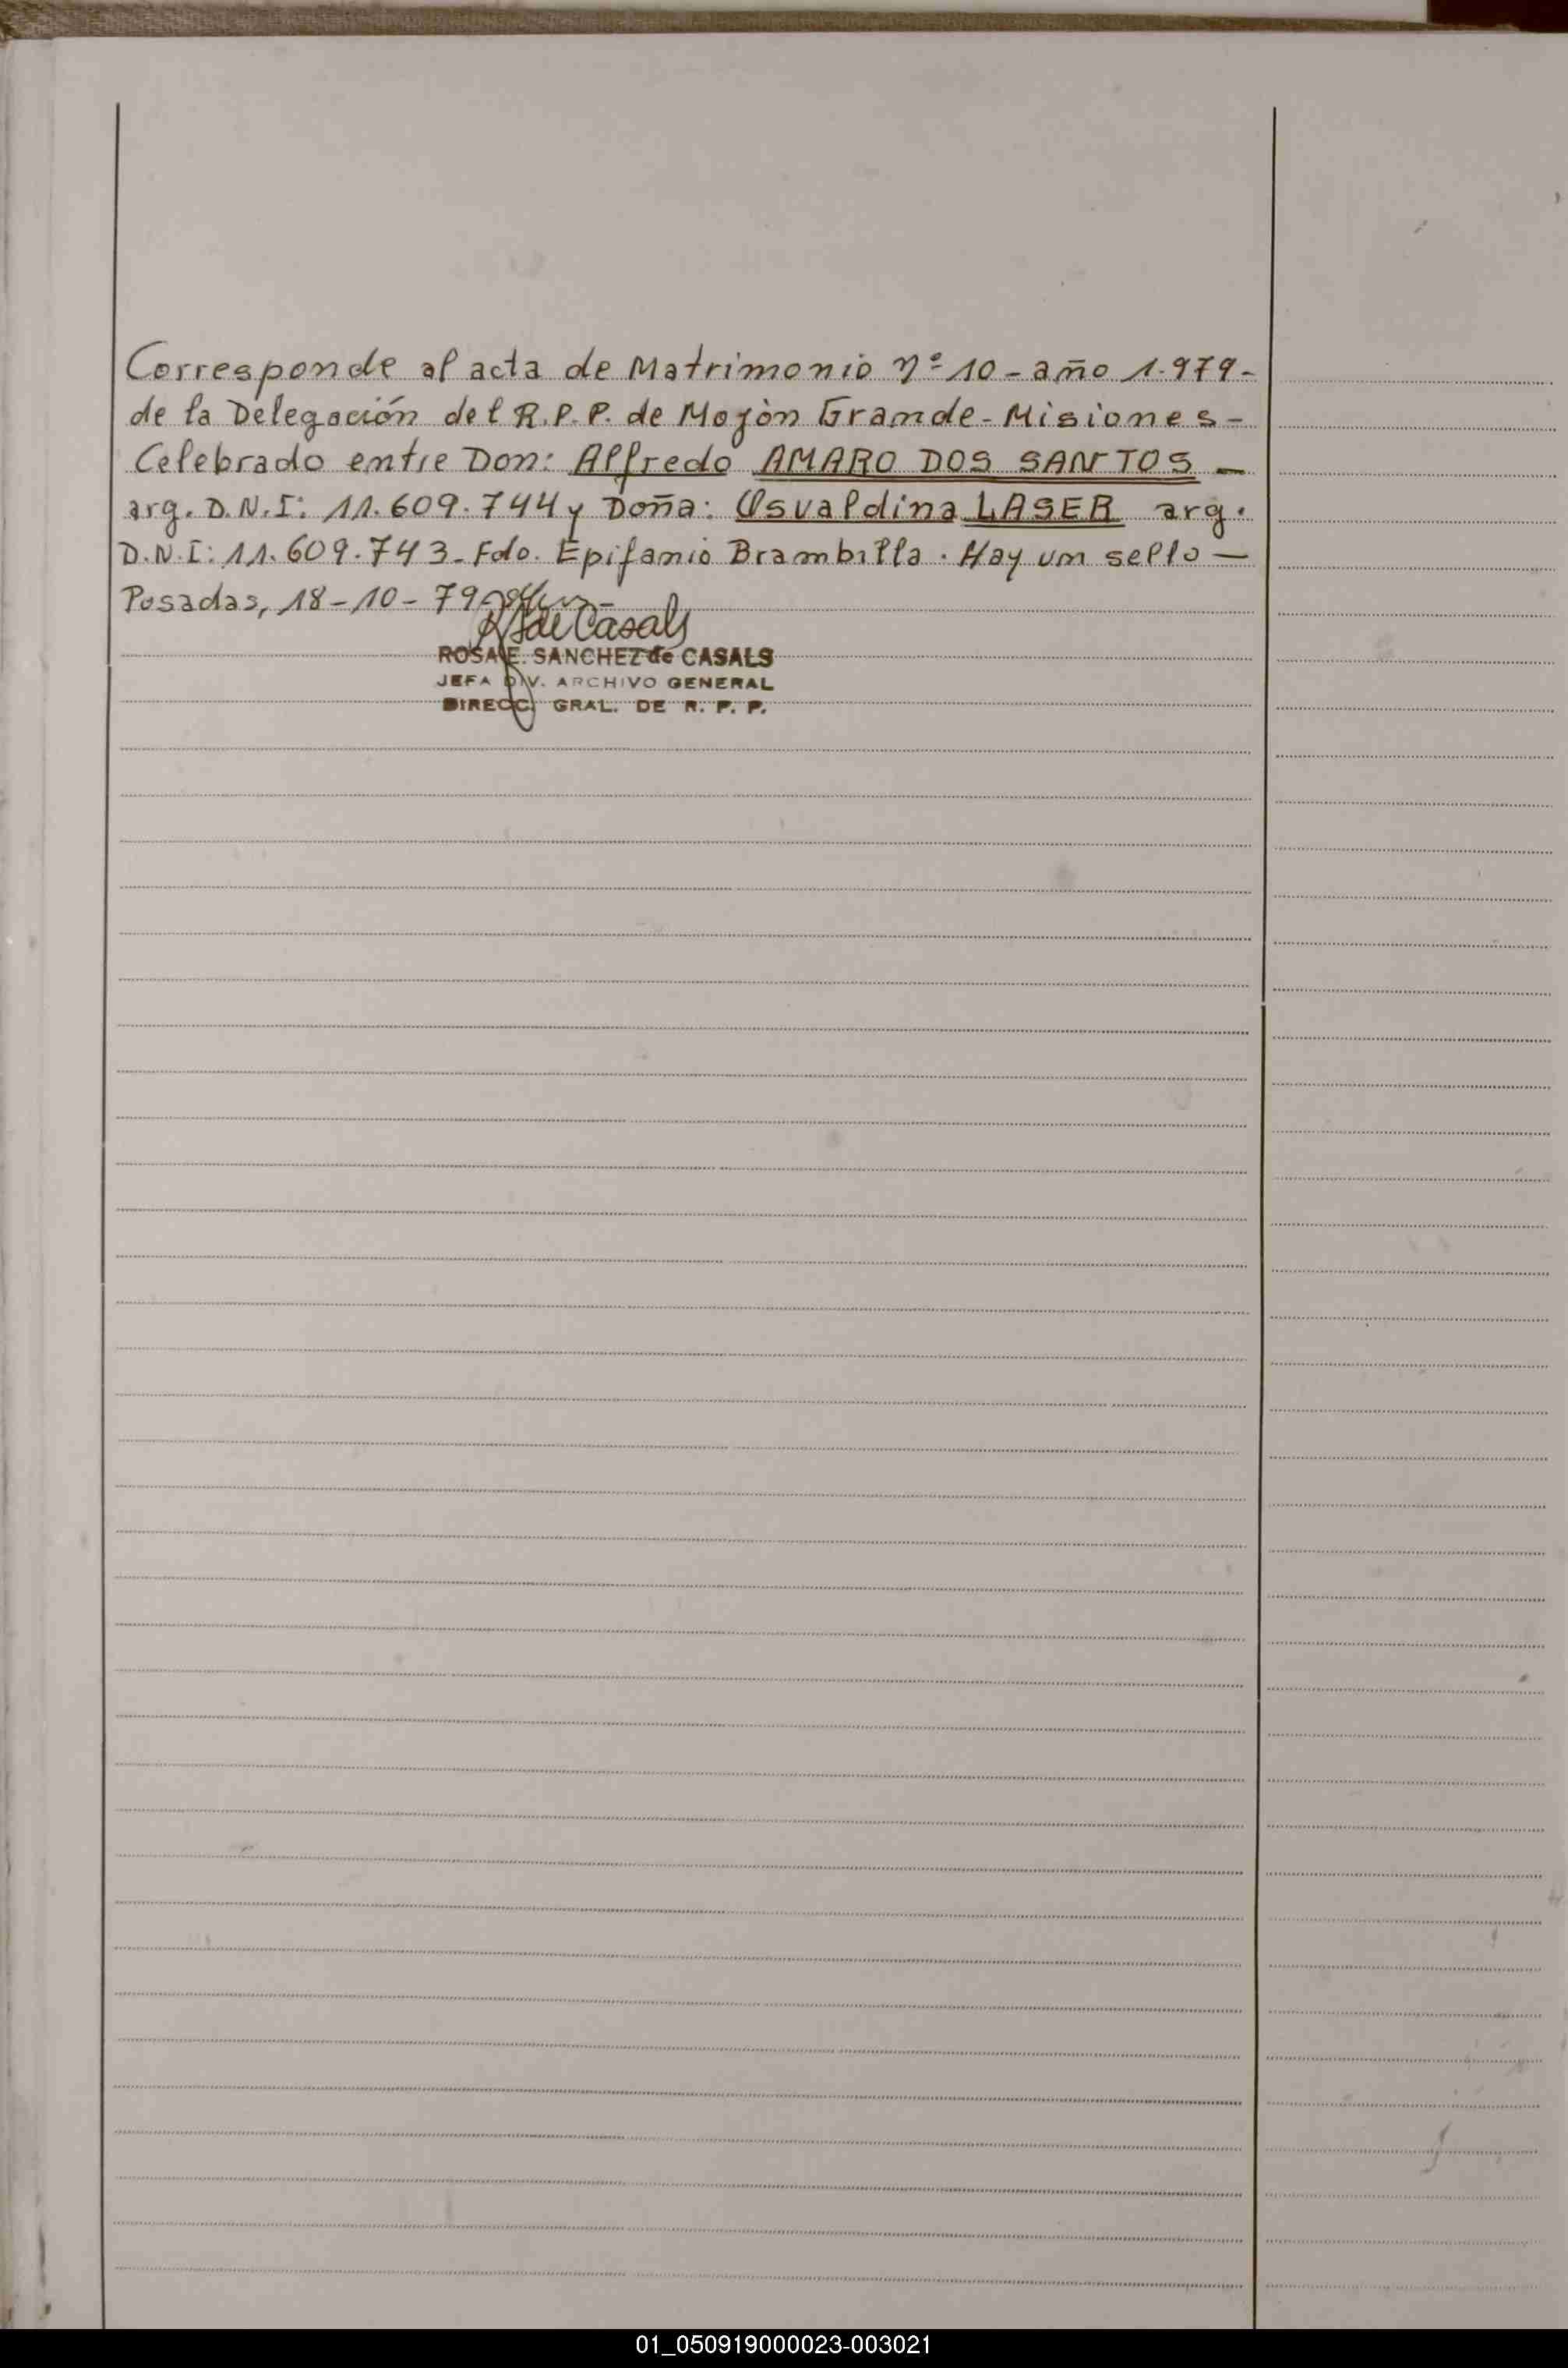 Corresponde al acta de Matrimonio nº 10 - año 1.979-
de la Delegación del R.P.P. de Mojón Grande - Misiones -
Celebrado entre Don: Alfredo AMARO DOS SANTOS -
arg. D.N.I: 11.609.744 y Doña: Osvaldina LASER arg.
D.N.I: 11.609.743 - Fdo. Epifanio Brambilla. Hay un sello -
Posadas, 18-10-79
de Casals
ROSA E. SANCHEZ de CASALS
JEFA DIV. ARCHIVO GENERAL
DIRECC. GRAL. DE R. P. P.
01_050919000023-003021